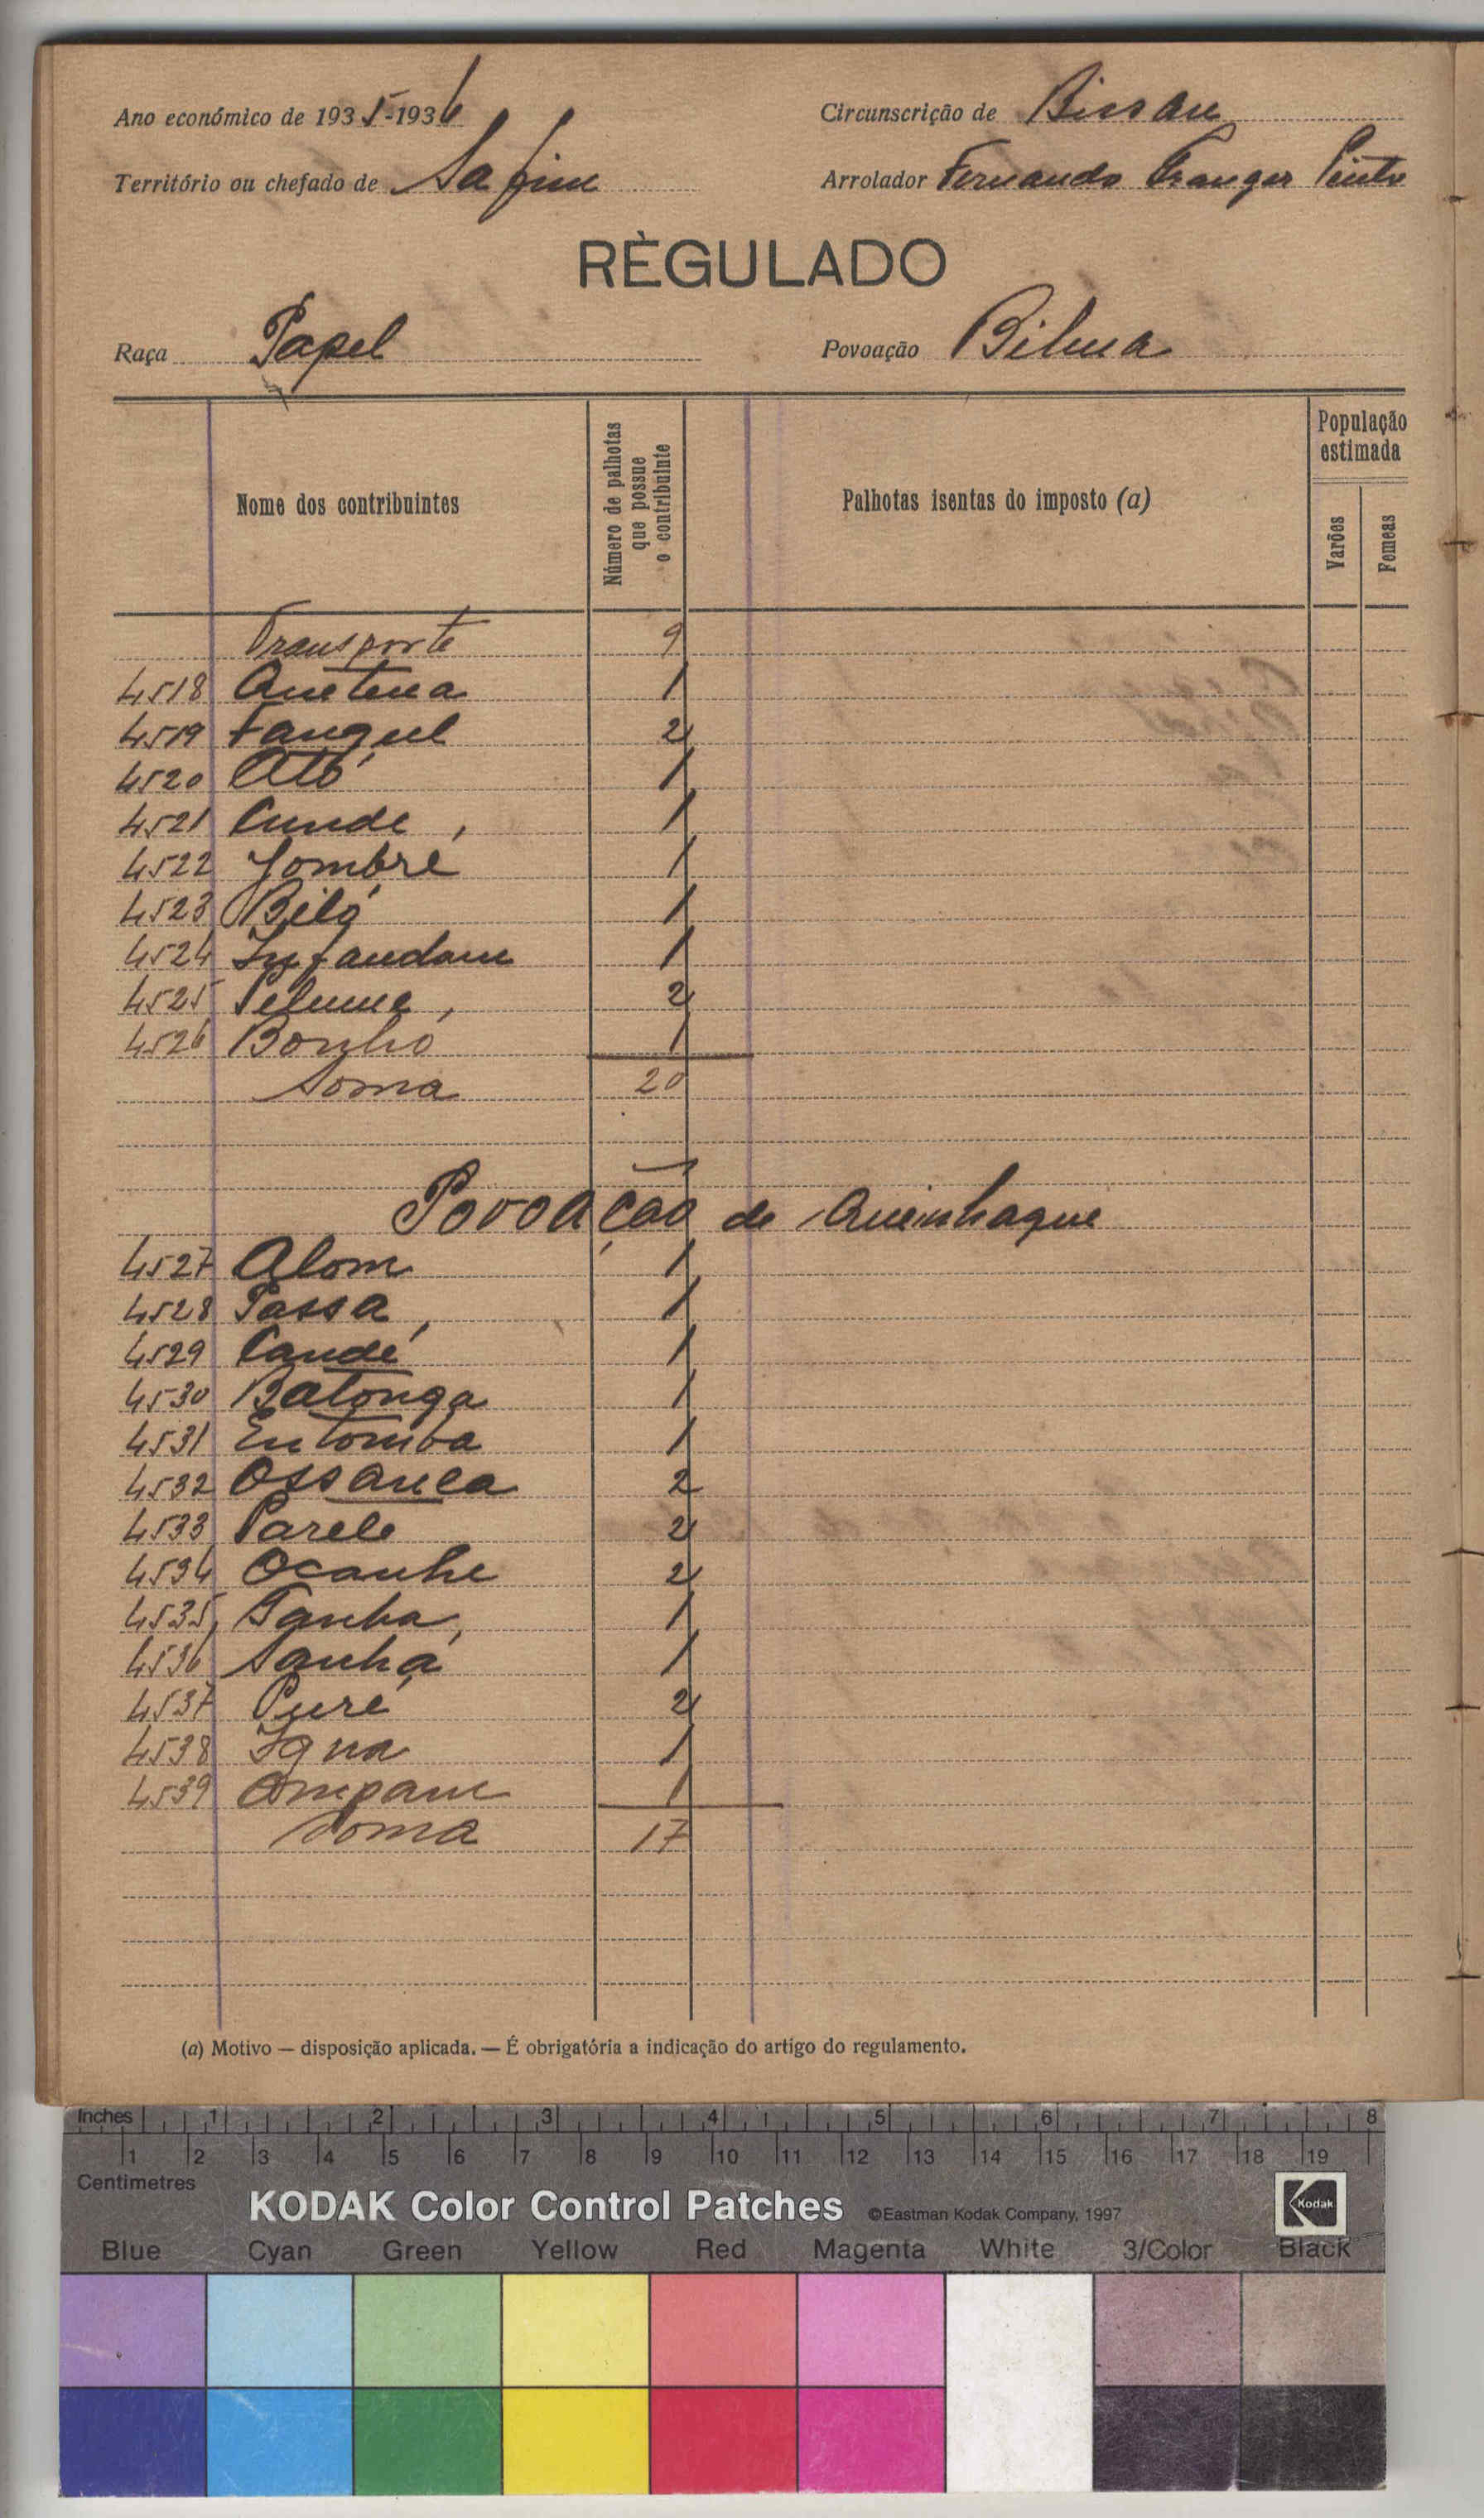 Ano económico de 1935-1936 Circunscrição de Bissau
Território ou chefado de Safim Arrolador Fernando Franger Pinto
RÈGULADO
Raça Papel Povoação Bilma
Nome dos contribuintes Número de palhotas que possue o contribuinte Palhotas isentas do imposto (a) População estimada Varões Femeas
Transporte 9
4518 Anetena 1
4519 Fanguel 2
4520 Ató 1
4521 Cunde 1
4522 Jombré 1
4523 Biló 1
4524 Infandam 1
4525 Pelume 2
4526 Bonhó 1
Soma 20
Povoação de Queinhaque
4527 Alom 1
4528 Passa 1
4529 Candé 1
4530 Batonga 1
4531 Entomba 1
4532 Ossanca 2
4533 Parele 2
4534 Ocanhe 2
4535 Tanha 1
4536 Sanhá 1
4537 Puré 2
4538 Igna 1
4539 Ompam 1
Soma 17
(a) Motivo — disposição aplicada. — É obrigatória a indicação do artigo do regulamento.
Inches 1 2 3 4 5 6 7 8
1 2 3 4 5 6 7 8 9 10 11 12 13 14 15 16 17 18 19
Centimetres
KODAK Color Control Patches ©Eastman Kodak Company, 1997 Kodak
Blue Cyan Green Yellow Red Magenta White 3/Color Black